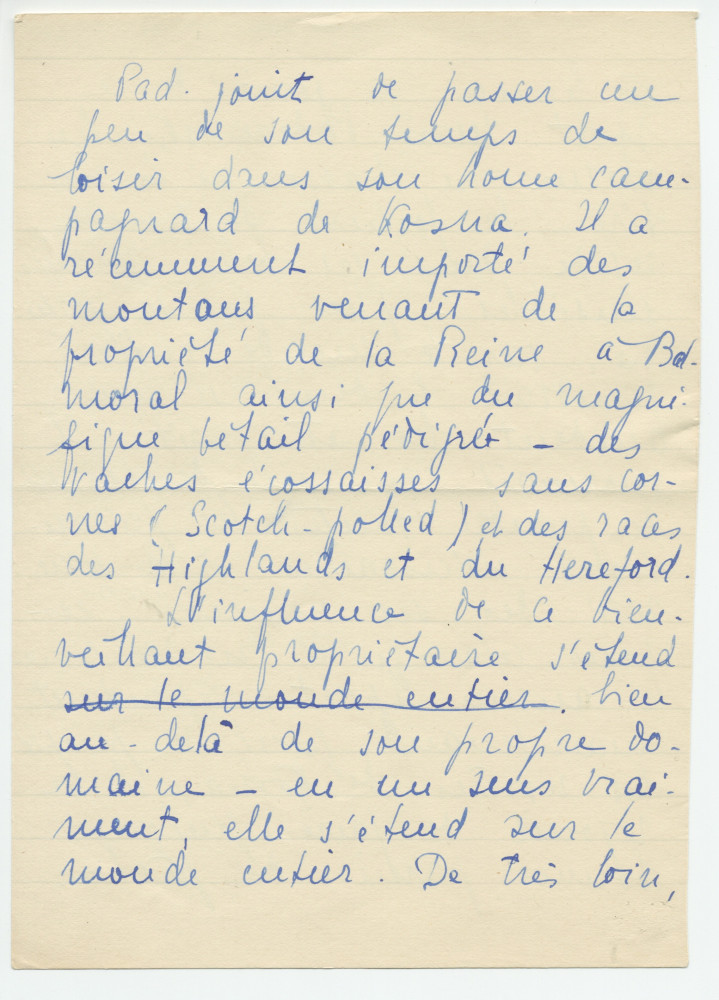 Pad. jouit de passer un
peu de son temps de
loisir dans son home cam-
pagnard de Kosna. Il a
récemment importé des
moutons venant de la
propriété de la Reine à Bal-
moral ainsi que du magni-
fique bétail pédigré - des
vaches écossaisses sans cor-
nes (Scotch-polled) et des races
des Highlands et du Hereford.
L'influence de ce bien-
veillant propriétaire s'étend
sur le monde entier. bien
au-delà de son propre do-
maine - en un sens vrai-
ment, elle s'étend sur le
monde entier. De très loin,